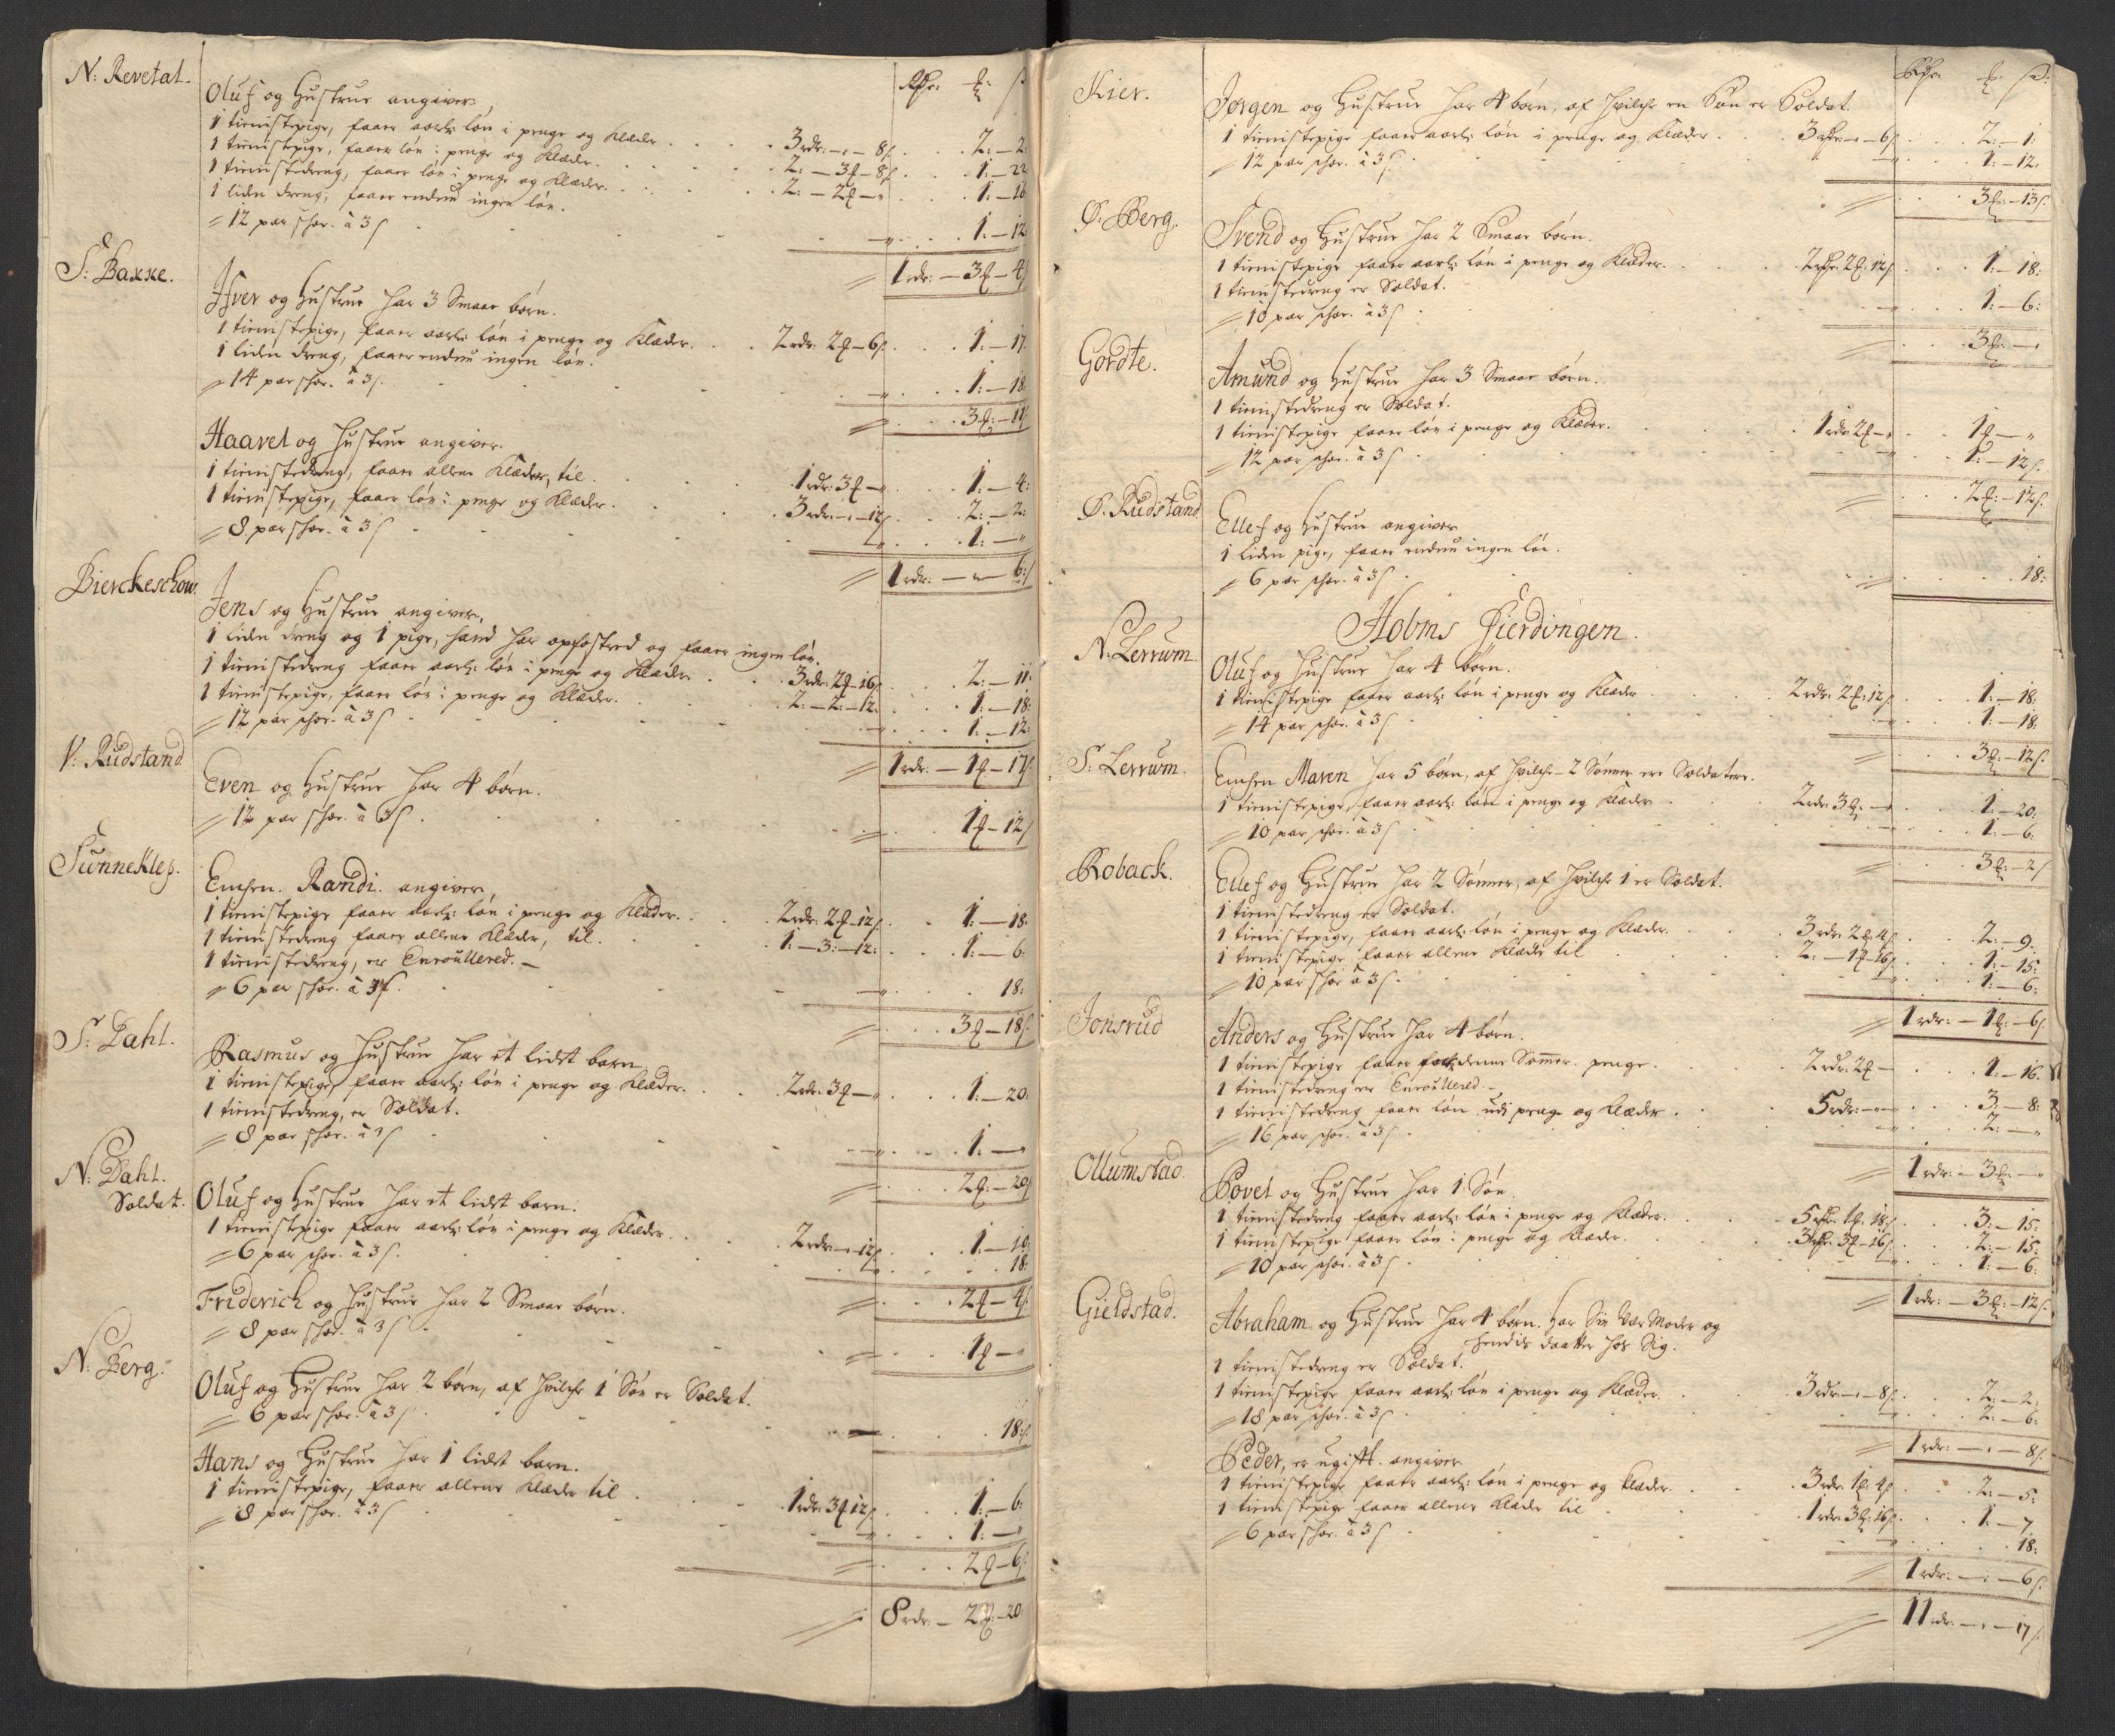 Rdr: ꝑ: ß
N: Revetal.
Oluf og Hustrue angiver,
1 tienistepige, faaer aarl: løn i penge og Klæder . . . 3 rdr: — 8ß . . . 2: — 2:
1 tienistepige, faaer løn i penge og Klæder . . . 2: — 3ꝑ — 8ß . . . 1: — 22
1 tienistedreng, faaer løn i penge og Klæder . . . 2: — 2ꝑ — „ . . . 1: — 16
1 liden dreng, faaer endnu ingen løn.
12 par schoe. à 3ß . . . 1: — 12
1 rdr: — 3ꝑ — 4ß
S: Bakke.
Ifver og Hustrue har 3 Smaae børn.
1 tienistepige, faaer aarl: løn i penge og Klæder . . . 2 rdr: 2ꝑ — 6ß . . . 1: — 17
1 liden dreng, faaer endnu ingen løn.
14 par schoe. à 3ß . . . 1: — 18
3ꝑ: — 11ß
Haavel og Hustrue angiver.
1 tienistedreng, faaer allene Klæder, til . . . 1 rdr: 3ꝑ — „ . . . 1: — 4:
1 tienistepige, faaer løn i penge og Klæder . . . 3 rdr: — 12ß . . . 2: — 2:
8 par schoe. à 3ß . . . 1: — „
1 rdr: — „ — 6:ß
Bierckeschow
Jens og Hustrue angiver,
1 liden dreng og 1 pige, hand har opfostred og faaer ingen løn.
1 tienistedreng faaer aarl: løn i penge og Klæder . . . 3 rdr: 2ꝑ — 16ß . . . 2: — 11:
1 tienistepige, faaer løn i penge og Klæder . . . 2: — 2: — 12: . . . 1: — 18:
12 par schoe. à 3ß . . . 1: — 12:
1 rdr: — 1ꝑ — 17ß
V: Rudstand
Even og Hustrue har 4 børn.
12 par schoe. à 3ß . . . 1ꝑ — 12ß
Sunneklef.
Enchen. Randi. angiver,
1 tienistepige faaer aarl: løn i penge og Klæder . . . 2 rdr: 2ꝑ — 12ß . . . 1: — 18
1 tienistedreng faaer allene Klæder, til . . . 1: — 3: — 12: . . . 1: — 6:
1 tienistedreng, er Enroullered. —
6 par schoe. à 3ß . . . 18:
3ꝑ — 18ß
S: Dahl.
Rasmus og Hustrue har et lidet barn
1 tienistepige, faaer aarl: løn i penge og Klæder . . . 2 rdr: 3ꝑ — „ . . . 1: — 20:
1 tienistedreng, er Soldat.
8 par schoe. à 3ß . . . 1: — „
2ꝑ: — 20ß
N: Dahl.
Soldat.
Oluf og Hustrue har et lidet barn.
1 tienistepige faaer aarl: løn i penge og Klæder . . . 2 rdr: — 12ß . . . 1: — 10:
6 par schoe. à 3ß . . . 18:
2ꝑ — 4ß
Friderich og Hustrue har 2 Smaae børn.
8 par schoe. à 3ß . . . 1ꝑ — „
N: Berg.
Oluf og Hustrue har 2 børn, af hvilche 1 Søn er Soldat.
6 par schoe. à 3ß . . . 18:ß
Hans og Hustrue har 1 lidet barn.
1 tienistepige, faaer allene Klæder til . . . 1 rdr: 3ꝑ 12ß . . . 1: — 6:
8 par schoe. à 3ß . . . 1: — „
2ꝑ — 6ß
8 rdr: — 2ꝑ: — 20:
Rdr: ꝑ: ß:
Kier.
Jørgen og Hustrue har 4 børn, af hvilche en Søn er Soldat
1 tienistepige faaer aarl: løn i penge og Klæder . . . 3 rdr: — 6ß . . . 2: — 1:
12 par schoe. à 3ß . . . 1: — 12:
3ꝑ: — 13ß:
Ø: Berg.
Svend og Hustrue har 2 Smaae børn.
1 tienistepige faaer aarl: løn i penge og Klæder . . . 2 rdr: 2ꝑ: 12ß . . . 1: — 18:
1 tienistedreng er Soldat.
10 par schoe. à 3ß . . . 1: — 6:
3ꝑ: — „
Gordte.
Amund og Hustrue har 3 Smaae børn.
1 tienistedreng er Soldat.
1 tienistepige faaer løn i penge og Klæder . . . 1 rdr: 2ꝑ — „ . . . 1ꝑ — „
12 par schoe. à 3ß . . . 1: — 12ß
2ꝑ: — 12ß:
Ø: Rudstand
Ellef og Hustrue angiver
1 liden pige, faaer endnu ingen løn.
6 par schoe. à 3ß . . . 18:
Holms Fierdingen.
N: Lerrum.
Oluf og Hustrue har 4 børn.
1 tienistepige faaer aarl: løn i penge og Klæder . . . 2 rdr: 2ꝑ: 12ß . . . 1: — 18:
14 par schoe. à 3ß . . . 1: — 18:
3ꝑ: — 12ß:
S: Lerrum.
Enchen Maren har 5 børn, af hvilche 2 Sønner ere Soldatere.
1 tienistepige, faaer aarl: løn i penge og Klæder . . . 2 rdr: 3ꝑ: — „ . . . 1: — 20:
10 par schoe. à 3ß . . . 1: — 6:
3ꝑ: — 2ß
Roback.
Ellef og Hustrue har 2 Sønner, af hvilche 1 er Soldat.
1 tienistedreng er Soldat.
1 tienistepige, faaer aarl: løn i penge og Klæder . . . 3 rdr: 2ꝑ: 4ß . . . 2: — 9:
1 tienistepige faaer allene Klæder til . . . 2: — 1ꝑ — 16ß . . . 1: — 15:
10 par schoe à 3ß . . . 1: — 6:
1 rdr: — 1ꝑ: — 6ß
Jonsrud
Anders og Hustrue har 4 børn.
1 tienistepige faaer denne Sommer. penge . . . 2 rdr: 2ꝑ — . . . 1: — 16:
1 tienistedreng er Enroullered. —
1 tienistedreng faaer løn udi penge og Klæder . . . 5 rdr: — . . . 3: — 8:
16 par schoe. à 3ß . . . 2: — „
1 rdr: — 3ꝑ: — „
Ollumstad.
Povel og Hustrue har 1 Søn.
1 tienistedreng faaer aarl: løn i penge og Klæder . . . 5 rdr: 1ꝑ: 18ß . . . 3: — 15:
1 tienistepige faaer løn i penge og Klæder . . . 3 rdr: 3ꝑ — 16ß . . . 2: — 15:
10 par schoe. à 3ß . . . 1: — 6:
1 rdr: — 3ꝑ: — 12ß:
Gieldstad.
Abraham og Hustrue har 4 børn. har Sin Vær Moder og
hendis daatter hos Sig.
1 tienistedreng er Soldat.
1 tienistepige faaer aarl: løn i penge og Klæder . . . 3 rdr: — 8ß . . . 2: — 2:
18 par schoe. à 3ß . . . 2: — 6:
1 rdr: — „ — 8ß:
Peder, er ugift. angiver
1 tienistepige faaer aarl: løn i penge og Klæder . . . 3 rdr: 1ꝑ: 4ß . . . 2: — 5:
1 tienistepige faaer allene Klæder til . . . 1 rdr: 3ꝑ: 16ß . . . 1: — 7
6 par schoe. à 3ß . . . 18:
1 rdr: — : — 6ß:
11 rdr: — „ — 17ß: